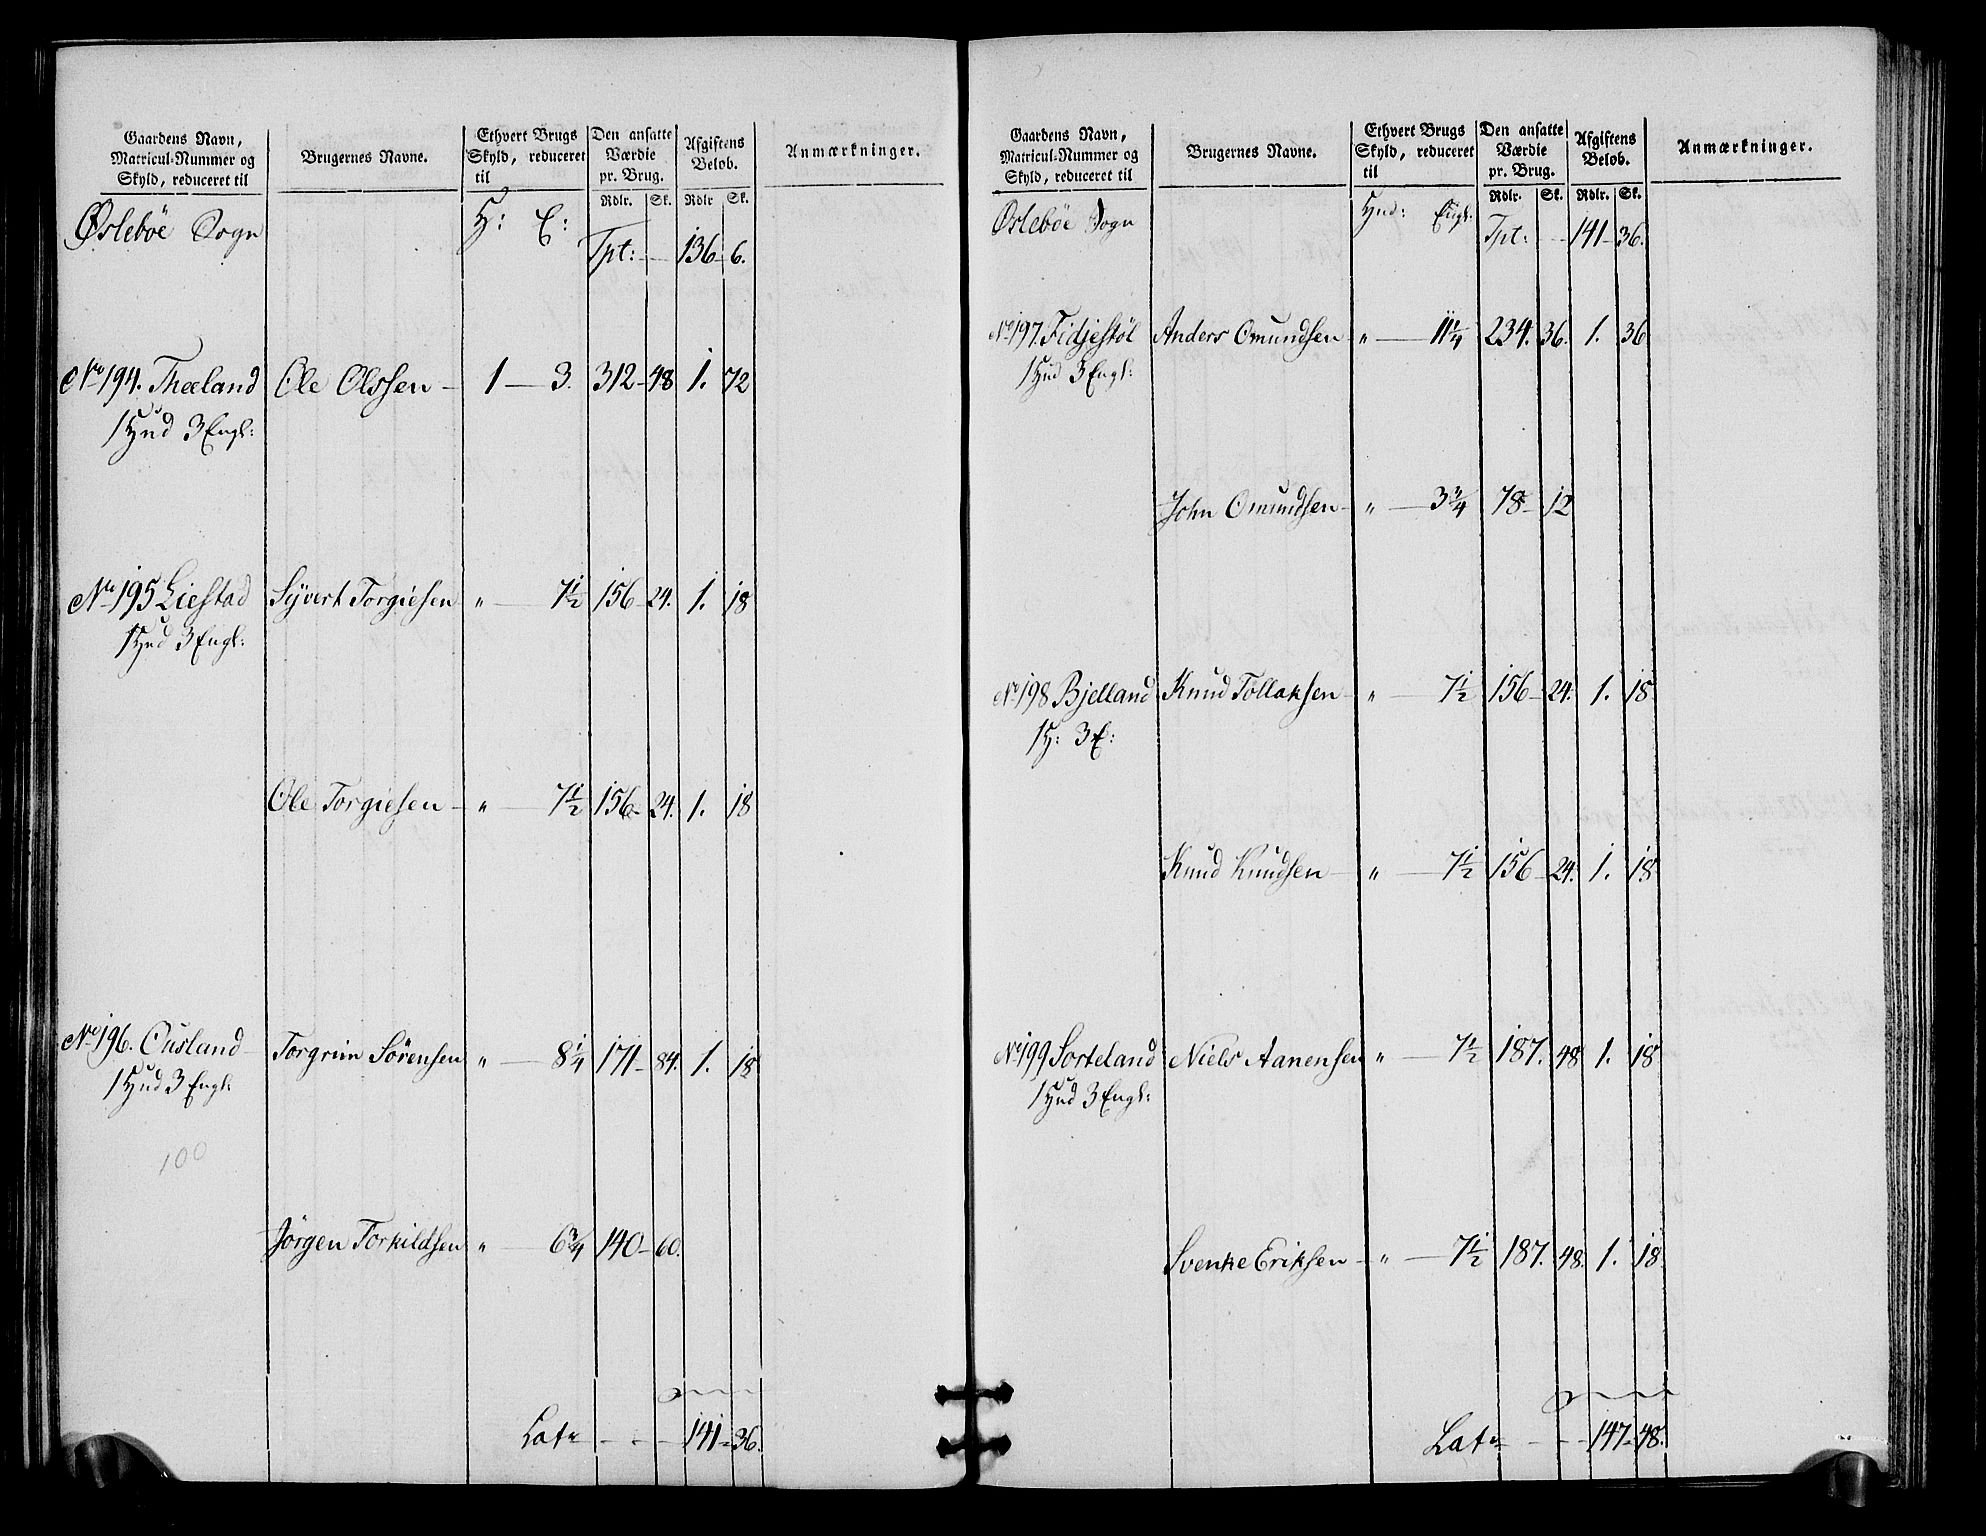 Gaardens Navn, Matricul-Nummer og Skyld, reduceret til | Brugernes Navne. | Ethvert Brugs Skyld, reduceret til | Den ansatte Værdie pr. Brug. | Afgiftens Beløb. | Anmærkninger.
Rdlr. | Sk. | Rdlr | Sk.
Øslebøe Sogn | H: E: | Tpt: — 136 - 6.
No 194. Thæland | Ole Olssen — | 1 — 3. | 312 - 48 | 1. | 72
1 Hud 3 Engl:
No 195 Liestad | Syvert Torgiesen | „ — 7½ | 156 - 24. | 1. | 18
1 Hud 3 Engl:
Ole Torgiesen — | „ — 7½ | 156 - 24. | 1. | 18
No 196. Ousland | Torgrim Sörensen | „ — 8¼ | 171 - 84. | 1. | 18
1 Hud 3 Engl:
100
Jörgen Torkildsen | „ — 6¾ | 140 - 60.
Lats — - — 141 - 36.
Gaardens Navn, Matricul-Nummer og Skyld, reduceret til | Brugernes Navne. | Ethvert Brugs Skyld, reduceret til | Den ansatte Værdie pr. Brug. | Afgiftens Beløb. | Anmærkninger.
Rdlr. | Sk. | Rdlr. | Sk.
Øslebøe Sogn | Hud: Engl: | Tpt: — 141 - 36.
No 197. Fidjestöl | Anders Omundsen | „ — 11¼ | 234. 36. | 1. | 36
1 Hud 3 Engl:
John Omundsen - | „ — 3¾ | 78 - 12
No 198 Bjelland | Knud Tollaksen - | „ — 7½ | 156 - 24. | 1. | 18
1 H: 3 E:
Knud Knudsen — | „ — 7½ | 156 - 24. | 1. | 18
No 199 Sorteland | Niels Aanensen | „ — 7½ | 187. 48 | 1. | 18
1 Hud 3 Engl:
Svenke Eriksen — | „ — 7½ | 187. 48. | 1. | 18
Lats - - — 147 - 48.